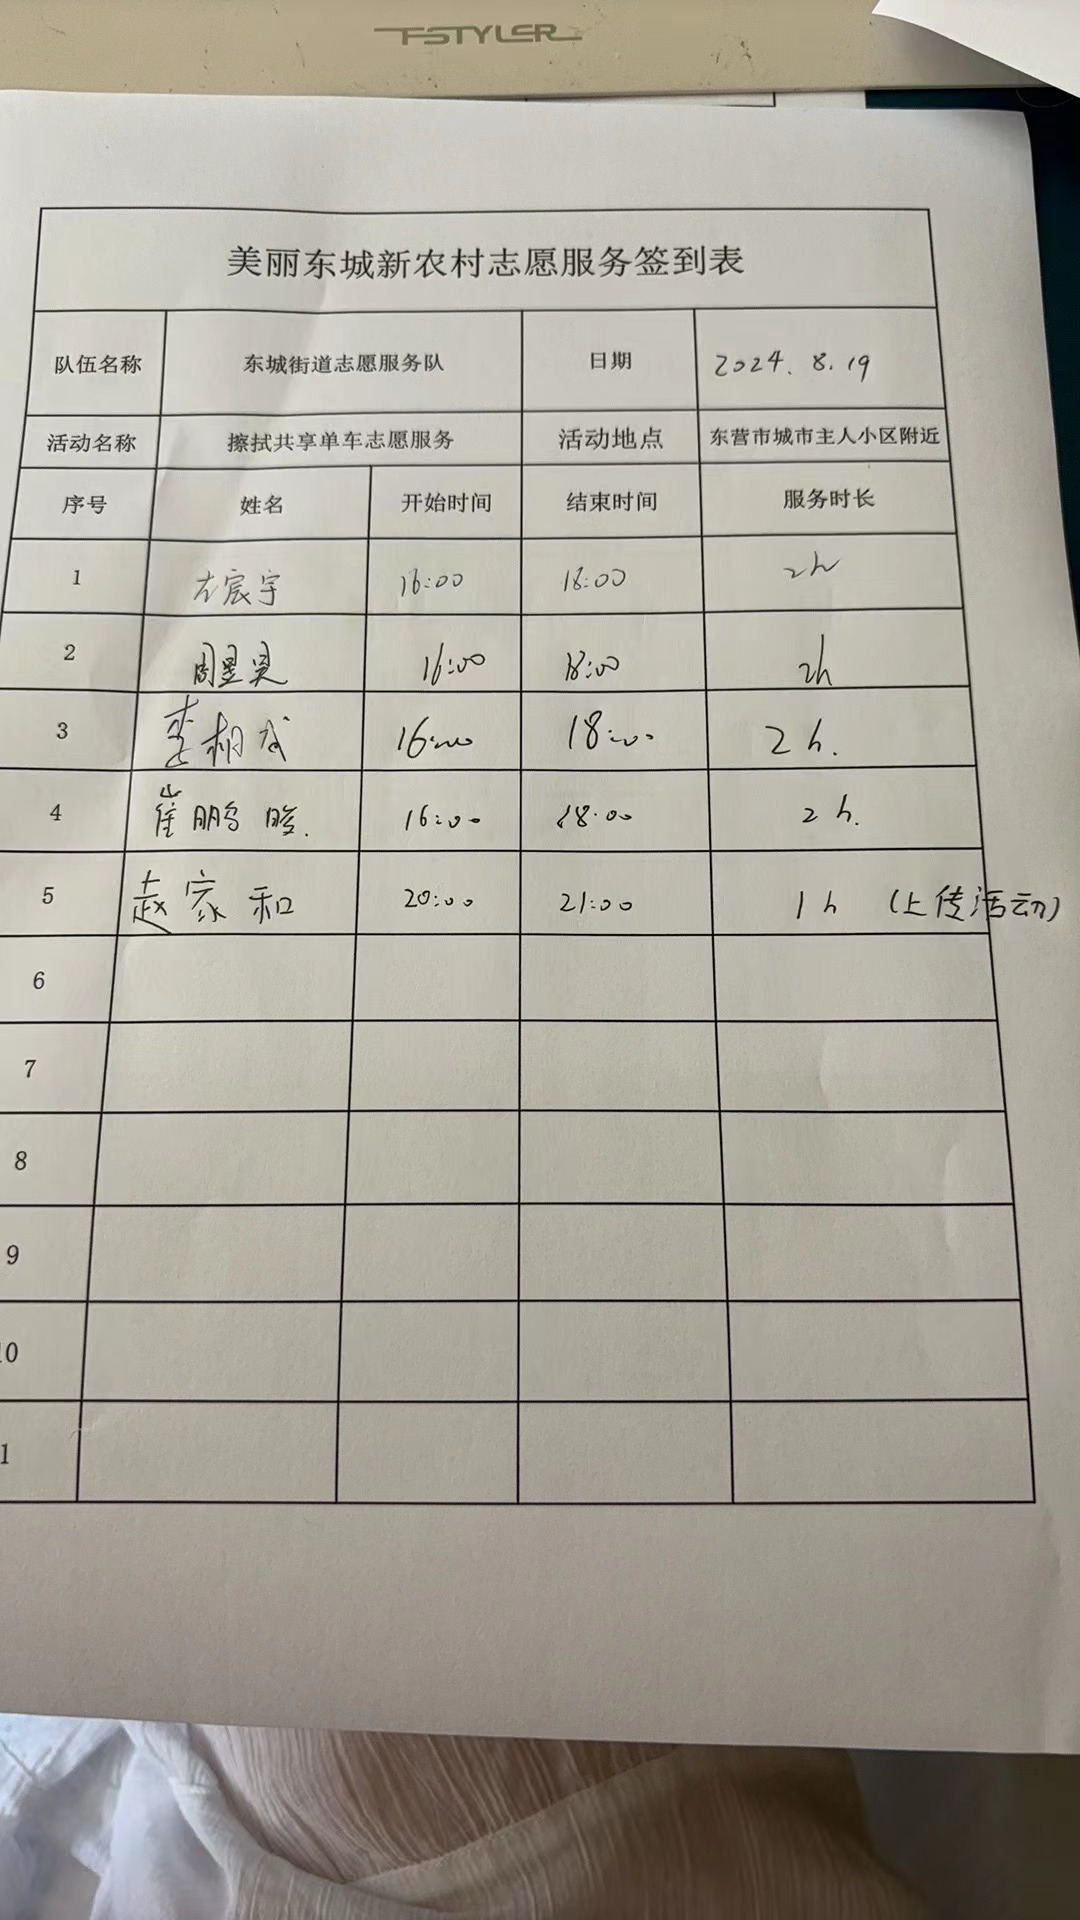 FSTYLER
美丽东城新农村志愿服务签到表
队伍名称 东城街道志愿服务队 日期 2024.8.19
活动名称 擦拭共享单车志愿服务 活动地点 东营市城市主人小区附近
序号 姓名 开始时间 结束时间 服务时长
1 左宸宇 16:00 18:00 2h
2 周昱昊 16:00 18:00 2h
3 李相成 16:00 18:00 2h.
4 崔鹏 16:00 18:00 2h.
5 赵家和 20:00 21:00 1h (上传活动)
6
7
8
9
10
1